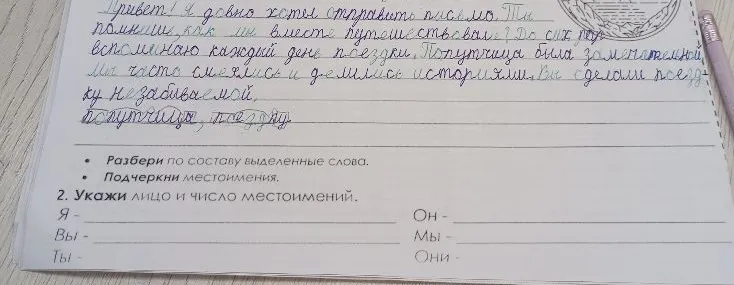 Привет! Я давно хотел отправить письмо. Ты
помнишь, как мы вместе путешествовали? До сих пор
вспоминаю каждый день поездки. Попутчица была замечательной.
Мы часто смеялись и делились историями. Вы сделали поезд-
ку незабываемой.
попутчица, поездку
• Разбери по составу выделенные слова.
• Подчеркни местоимения.
2. Укажи лицо и число местоимений.
Я - Он -
Вы - Мы -
Ты - Они -